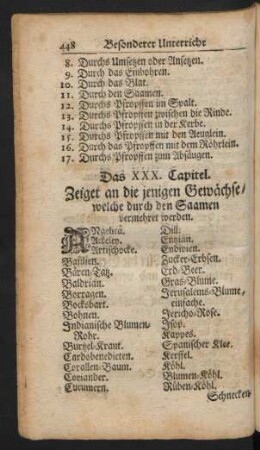 448 Besonderer Unterricht
8. Durchs Umsetzen oder Ansetzen.
9. Durch das Einbohren.
10. Durch das Blat.
11. Durch den Saamen.
12. Durchs Pfropffen im Spalt.
13. Durchs Pfropffen zwischen die Rinde.
14. Durchs Pfropffen in der Kerbe.
15. Durchs Pfropffen mit den Aeuglein.
16. Durch das Pfropffen mit dem Röhrlein.
17. Durchs Pfropffen zum Absäugen.
Das XXX. Capitel.
Zeiget an die jenigen Gewächse/
welche durch den Saamen
vermehret werden.
ANgelicä.
Ackeley.
Artischocke.
Basilien.
Bären-Tatz.
Baldrian.
Borragen.
Bocksbart.
Bohnen.
Indianische Blumen-
Rohr.
Burtzel-Kraut.
Cardobenedicten.
Corallen-Baum.
Coriander.
Cucumern.
Dill.
Entzian.
Endivien.
Zucker-Erbsen.
Erd-Beer.
Gras-Blume.
Jerusalems-Blume,
einfache.
Jericho-Rose.
Jsop.
Kappes.
Spanischer Klee.
Kerffel.
Köhl.
Blumen-Köhl.
Rüben-Köhl.
Schnecken-